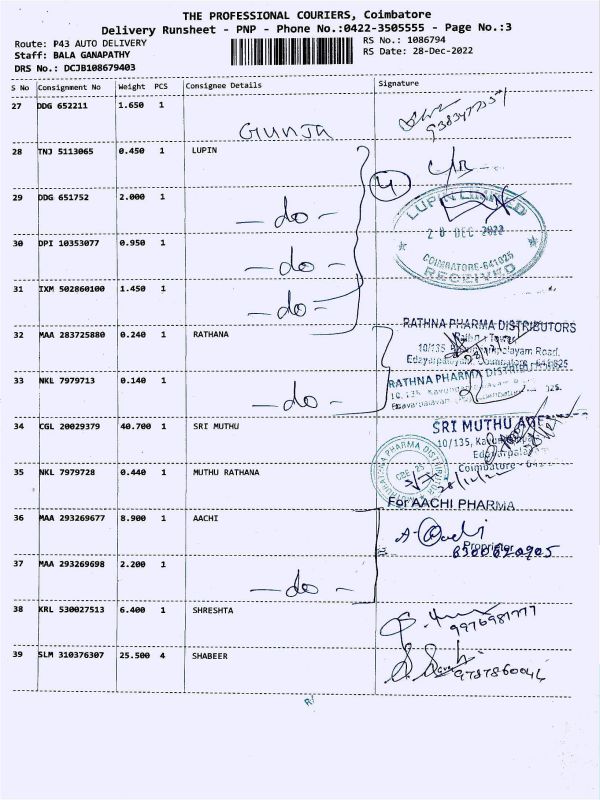 THE PROFESSIONAL COURIERS, Coimbatore
Delivery Runsheet - PNP - Phone No.:0422-3505555 - Page No.:3
Route: P43 AUTO DELIVERY
RS No.: 1086794
Staff: BALA GANAPATHY
RS Date: 28-Dec-2022
DRS No.: DCJB108679403
S No Consignment No Weight PCS Consignee Details Signature
27 DDG 652211 1.650 1
Gunja
28 TNJ 5113065 0.450 1 LUPIN
4
29 DDG 651752 2.000 1
- do -
LUPIN LIMITED
28 DEC 2022
COIMBATORE-641025
RECEIVED
30 DPI 10353077 0.950 1
- do -
31 IXM 502860100 1.450 1
- do -
32 MAA 283725880 0.240 1 RATHANA
RATHNA PHARMA DISTRIBUTORS
10/135,
Road,
Coimbatore - 641025
33 NKL 7979713 0.140 1
- do -
RATHNA PHARMA
34 CGL 20029379 40.700 1 SRI MUTHU
SRI MUTHU
10/135,
Coimbatore -
35 NKL 7979728 0.440 1 MUTHU RATHANA
PHARMA
For AACHI PHARMA
36 MAA 293269677 8.900 1 AACHI
Proprietor
37 MAA 293269698 2.200 1
- do -
38 KRL 530027513 6.400 1 SHRESHTA
9976981777
39 SLM 310376307 25.500 4 SHABEER
9787860046